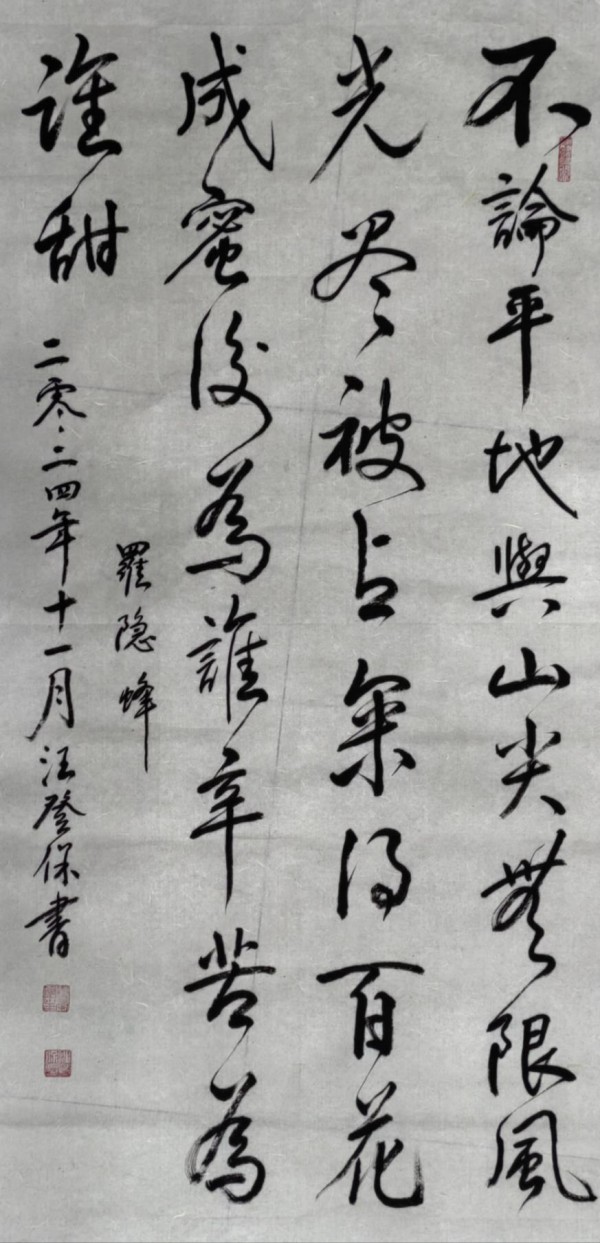 不論平地與山尖無限風
光尽被占氣得百花
成蜜後為誰辛苦為
誰甜
羅隐蜂
二零二四年十一月汪登保書